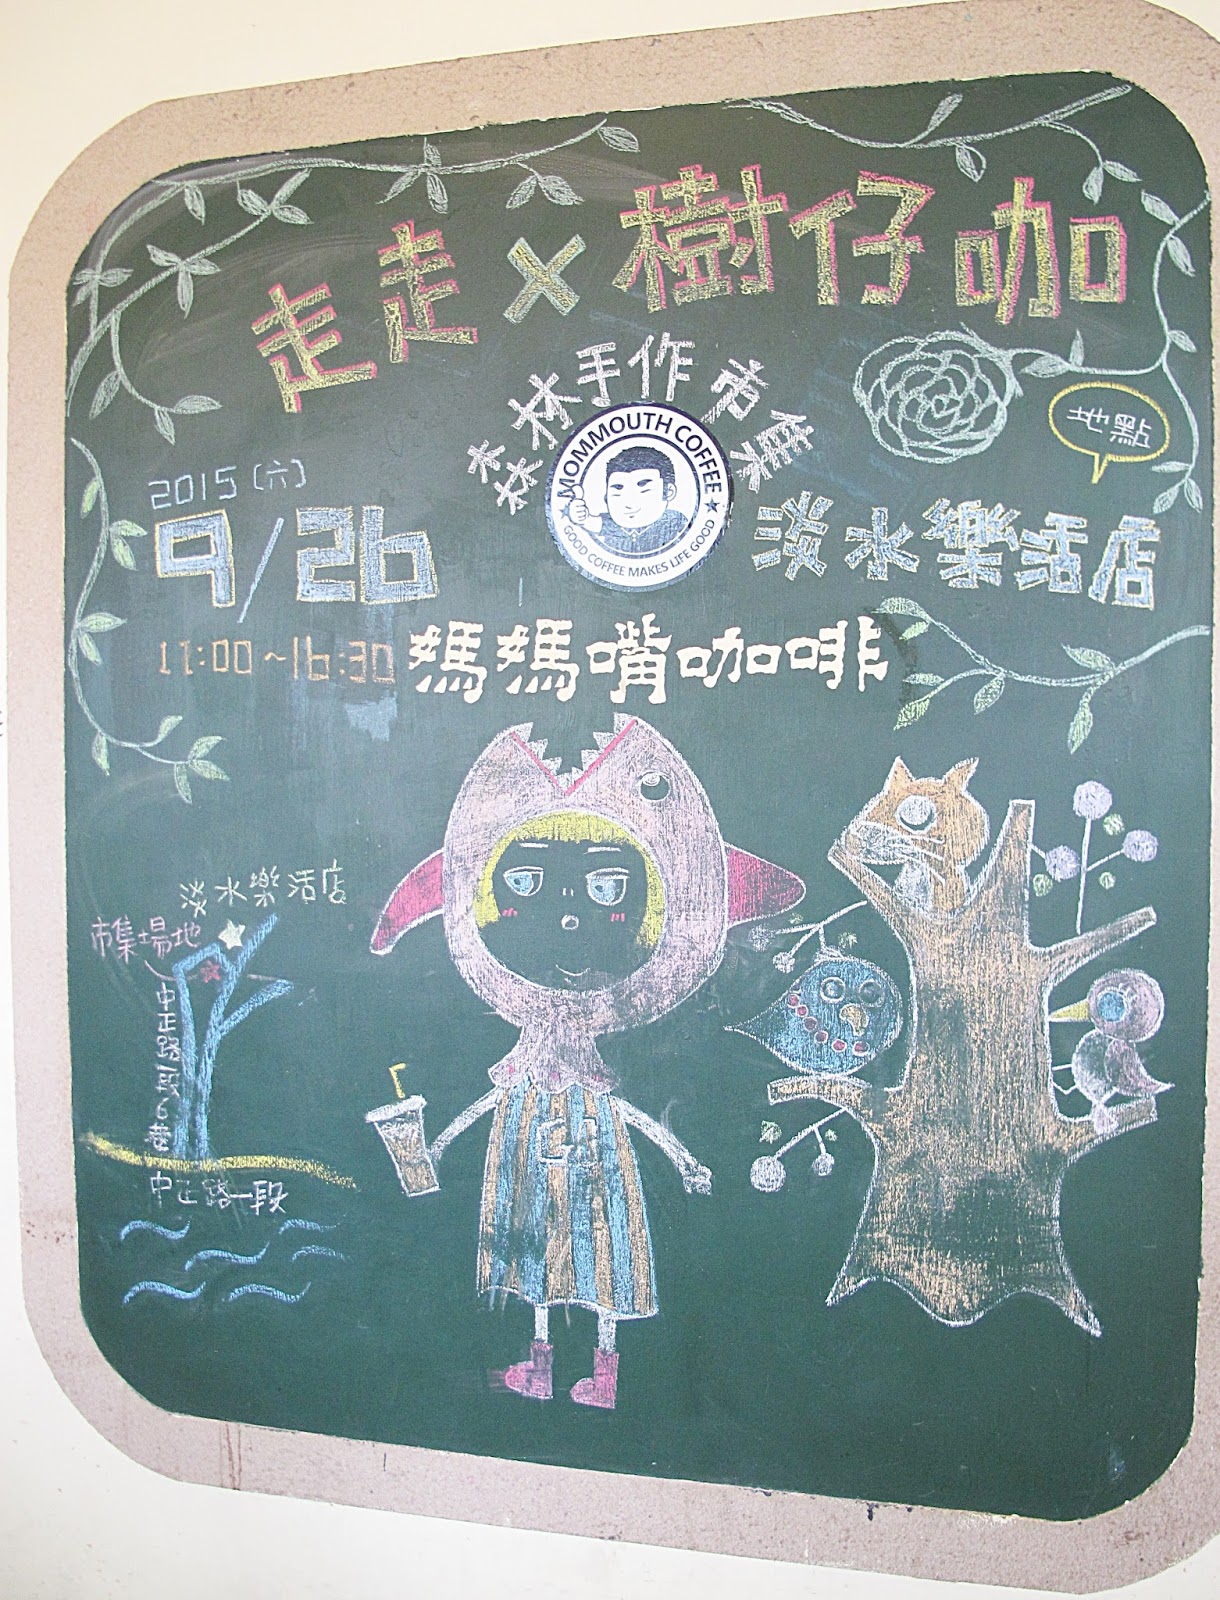 走走×樹仔咖
森林手作市集
MOMMOUTH COFFEE
GOOD COFFEE MAKES LIFE GOOD
地點
2015(六)
9/26
淡水樂活店
11:00~16:30
媽媽嘴咖啡
淡水樂活店
市集場地
中正路
巷
中正路一段